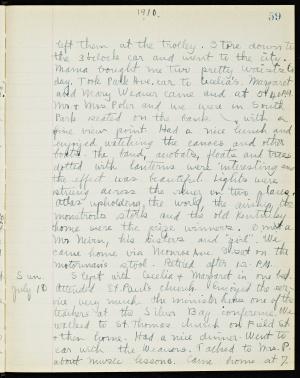 1910.
59
left them at the Trolley. I tore down to
the 3 o'clock car and went to the city.
Mama bought me two pretty waists to
day. Took Park Ave. car to Cecelia's. Margaret
and Mary Weaver came and at
Mr & Mrs Poler and we were in South
Park seated on the bank, with a
fine view point. Had a nice lunch and
enjoyed watching the canoes and other
boats. The band, acrobats, floats and trees
dotted with lanterns were interesting and
the effect was beautiful. Lights were
strung across the river in two places.
Atlas upholding the world, the airship, the
monstrous stork and the old Kentucky
home were the prize winners. I met a
Mr Neirn, his sisters and "girl". We
came home via Monroe Ave. I sat on the
motormans stool. Retired after 12 P.M.
Sun
July 10
Slept with Cecelia & Margaret in one bed.
attended St. Paul's church. Enjoyed the ser-
vice very much the minister was one of the
teachers at the Silver Bay conference. We
walked to St. Thomas church on Field St.
& then home. Had a nice dinner. Went to
car with the Weavers. Talked to Mrs. P.
about music lessons. Came home at 7.